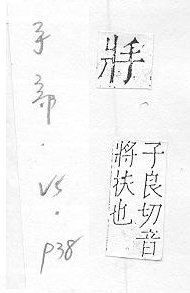 𢪇
子良切音
將扶也
手部.V5.p38